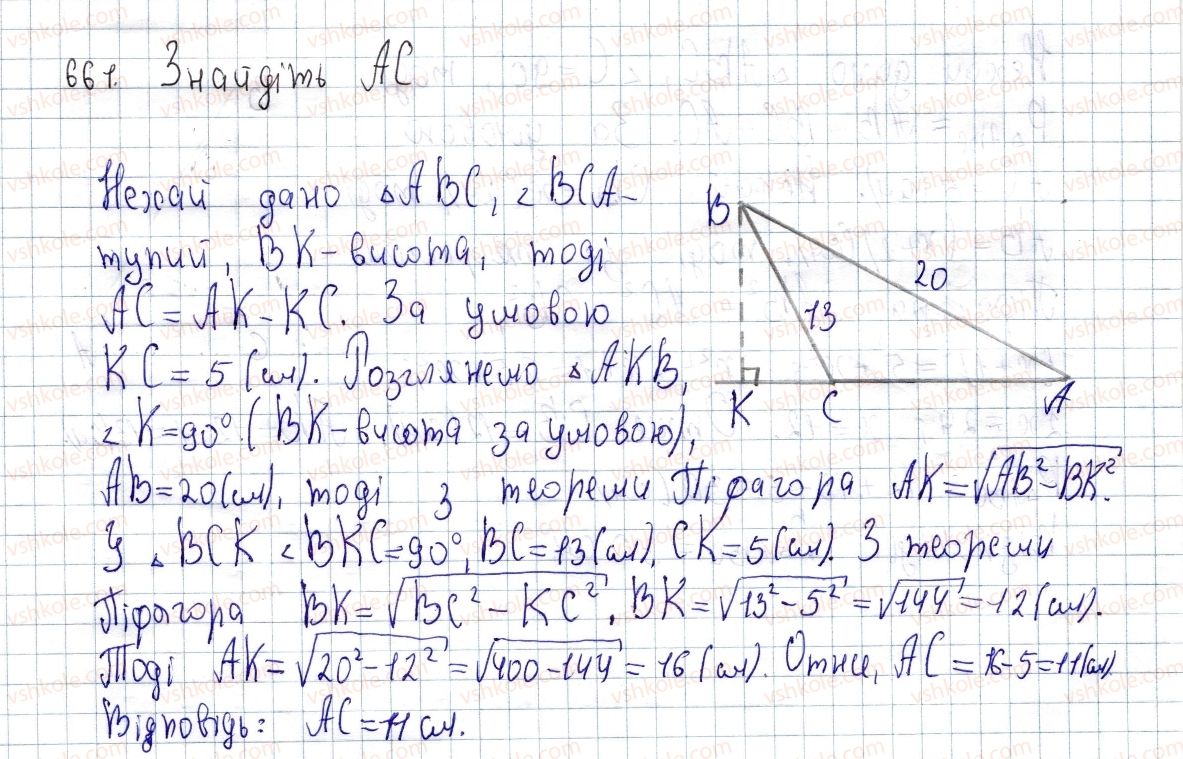 661. Знайдіть АС
Нехай дано △ABC, ∠BCA-
тупий, BK-висота, тоді
AC=AK-KC. За умовою
KC=5(см). Розглянемо △AKB,
∠K=90° (BK-висота за умовою),
AB=20(см), тоді з теореми Піфагора AK=√(AB²-BK²).
У △BCK ∠BKC=90°, BC=13(см), CK=5(см). З теореми
Піфагора BK=√(BC²-KC²). BK=√(13²-5²)=√144=12(см).
Тоді AK=√(20²-12²)=√(400-144)=16(см). Отже, AC=16-5=11(см).
Відповідь: AC=11 см.
B
20
13
K
C
A
vshkole.com